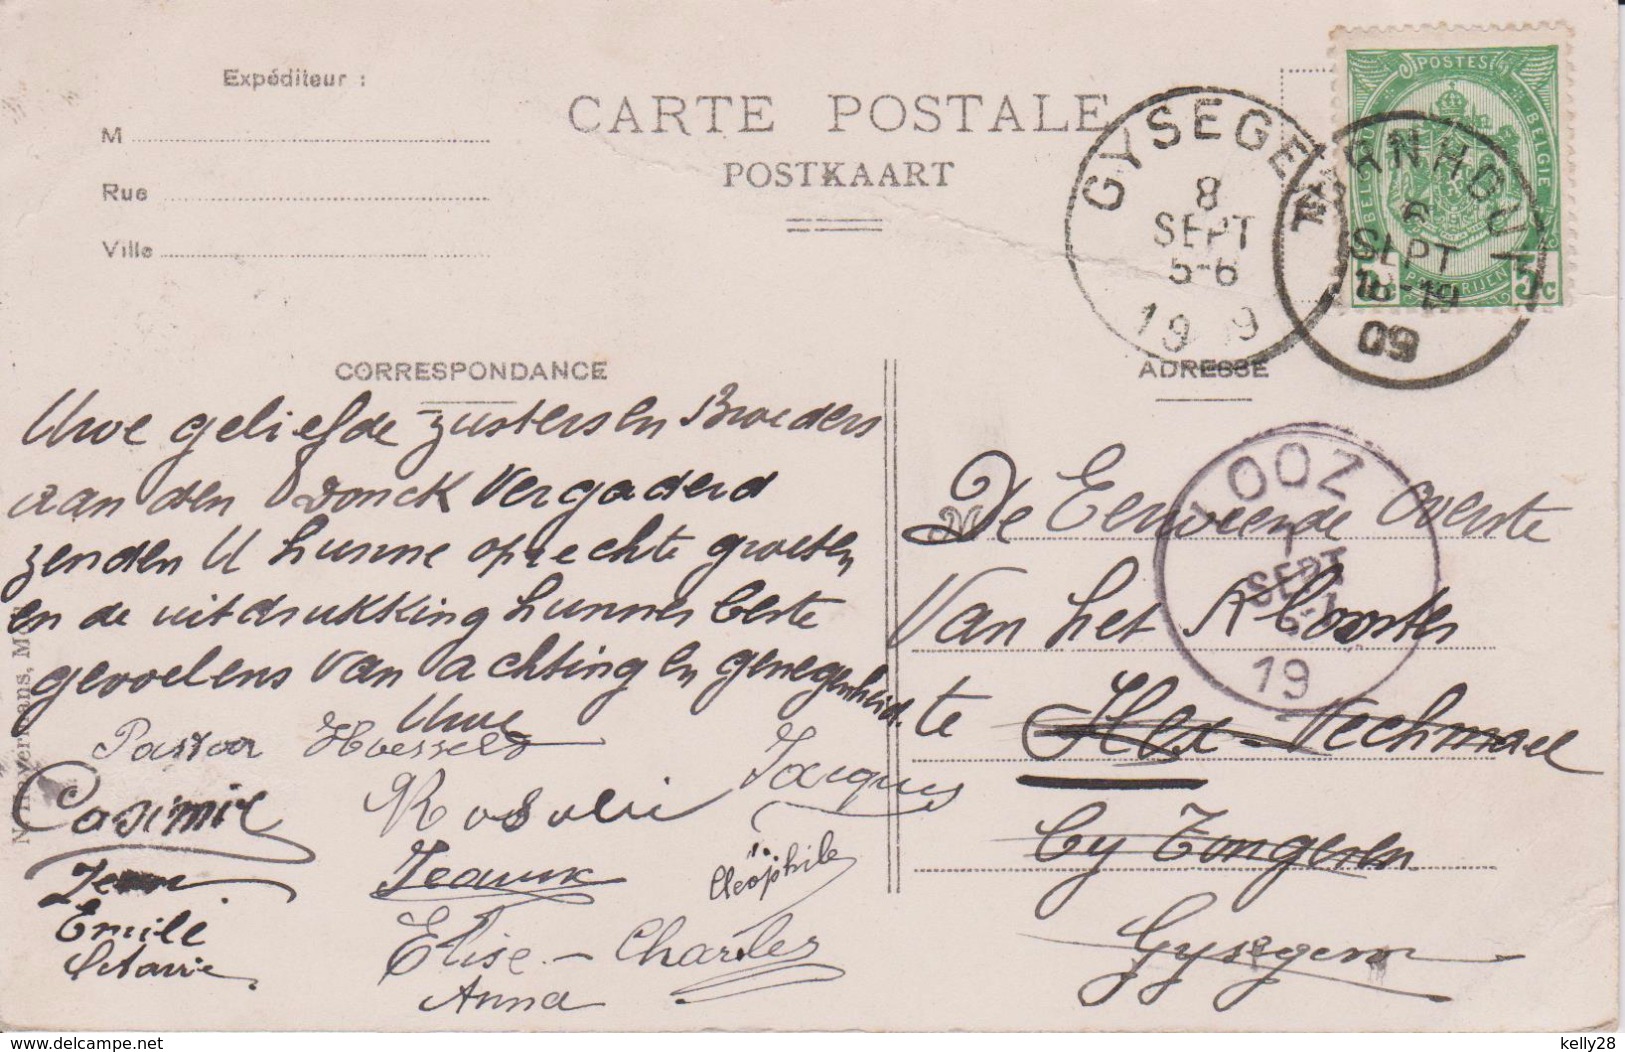 Expéditeur :
M
Rue
Ville
CARTE POSTALE
POSTKAART
POSTES
BELGIE
5c
GYSEGEM
8
SEPT
5-6
19 9
RNHOUT
6
SEPT
18-19
09
CORRESPONDANCE
ADRESSE
Uwe geliefde zusters en Broeders
aan den Donck vergaderd
zenden U hunne oprechte groeten
en de uitdrukking hunner beste
gevoelens van achting en genegenheid.
Uwe
Pastoor Hoesselt
Jacques
Casimir
Rosalie
Jean
Jeanne
Cleophile
Emile
Elise - Charles
Octavie
Anna
LOOZ
7
SEPT
19
De Eerweerde Overste
Van het Klooster
te Hex-Vechmael
by Tongeren
Gysegem
delcampe.net
kelly28